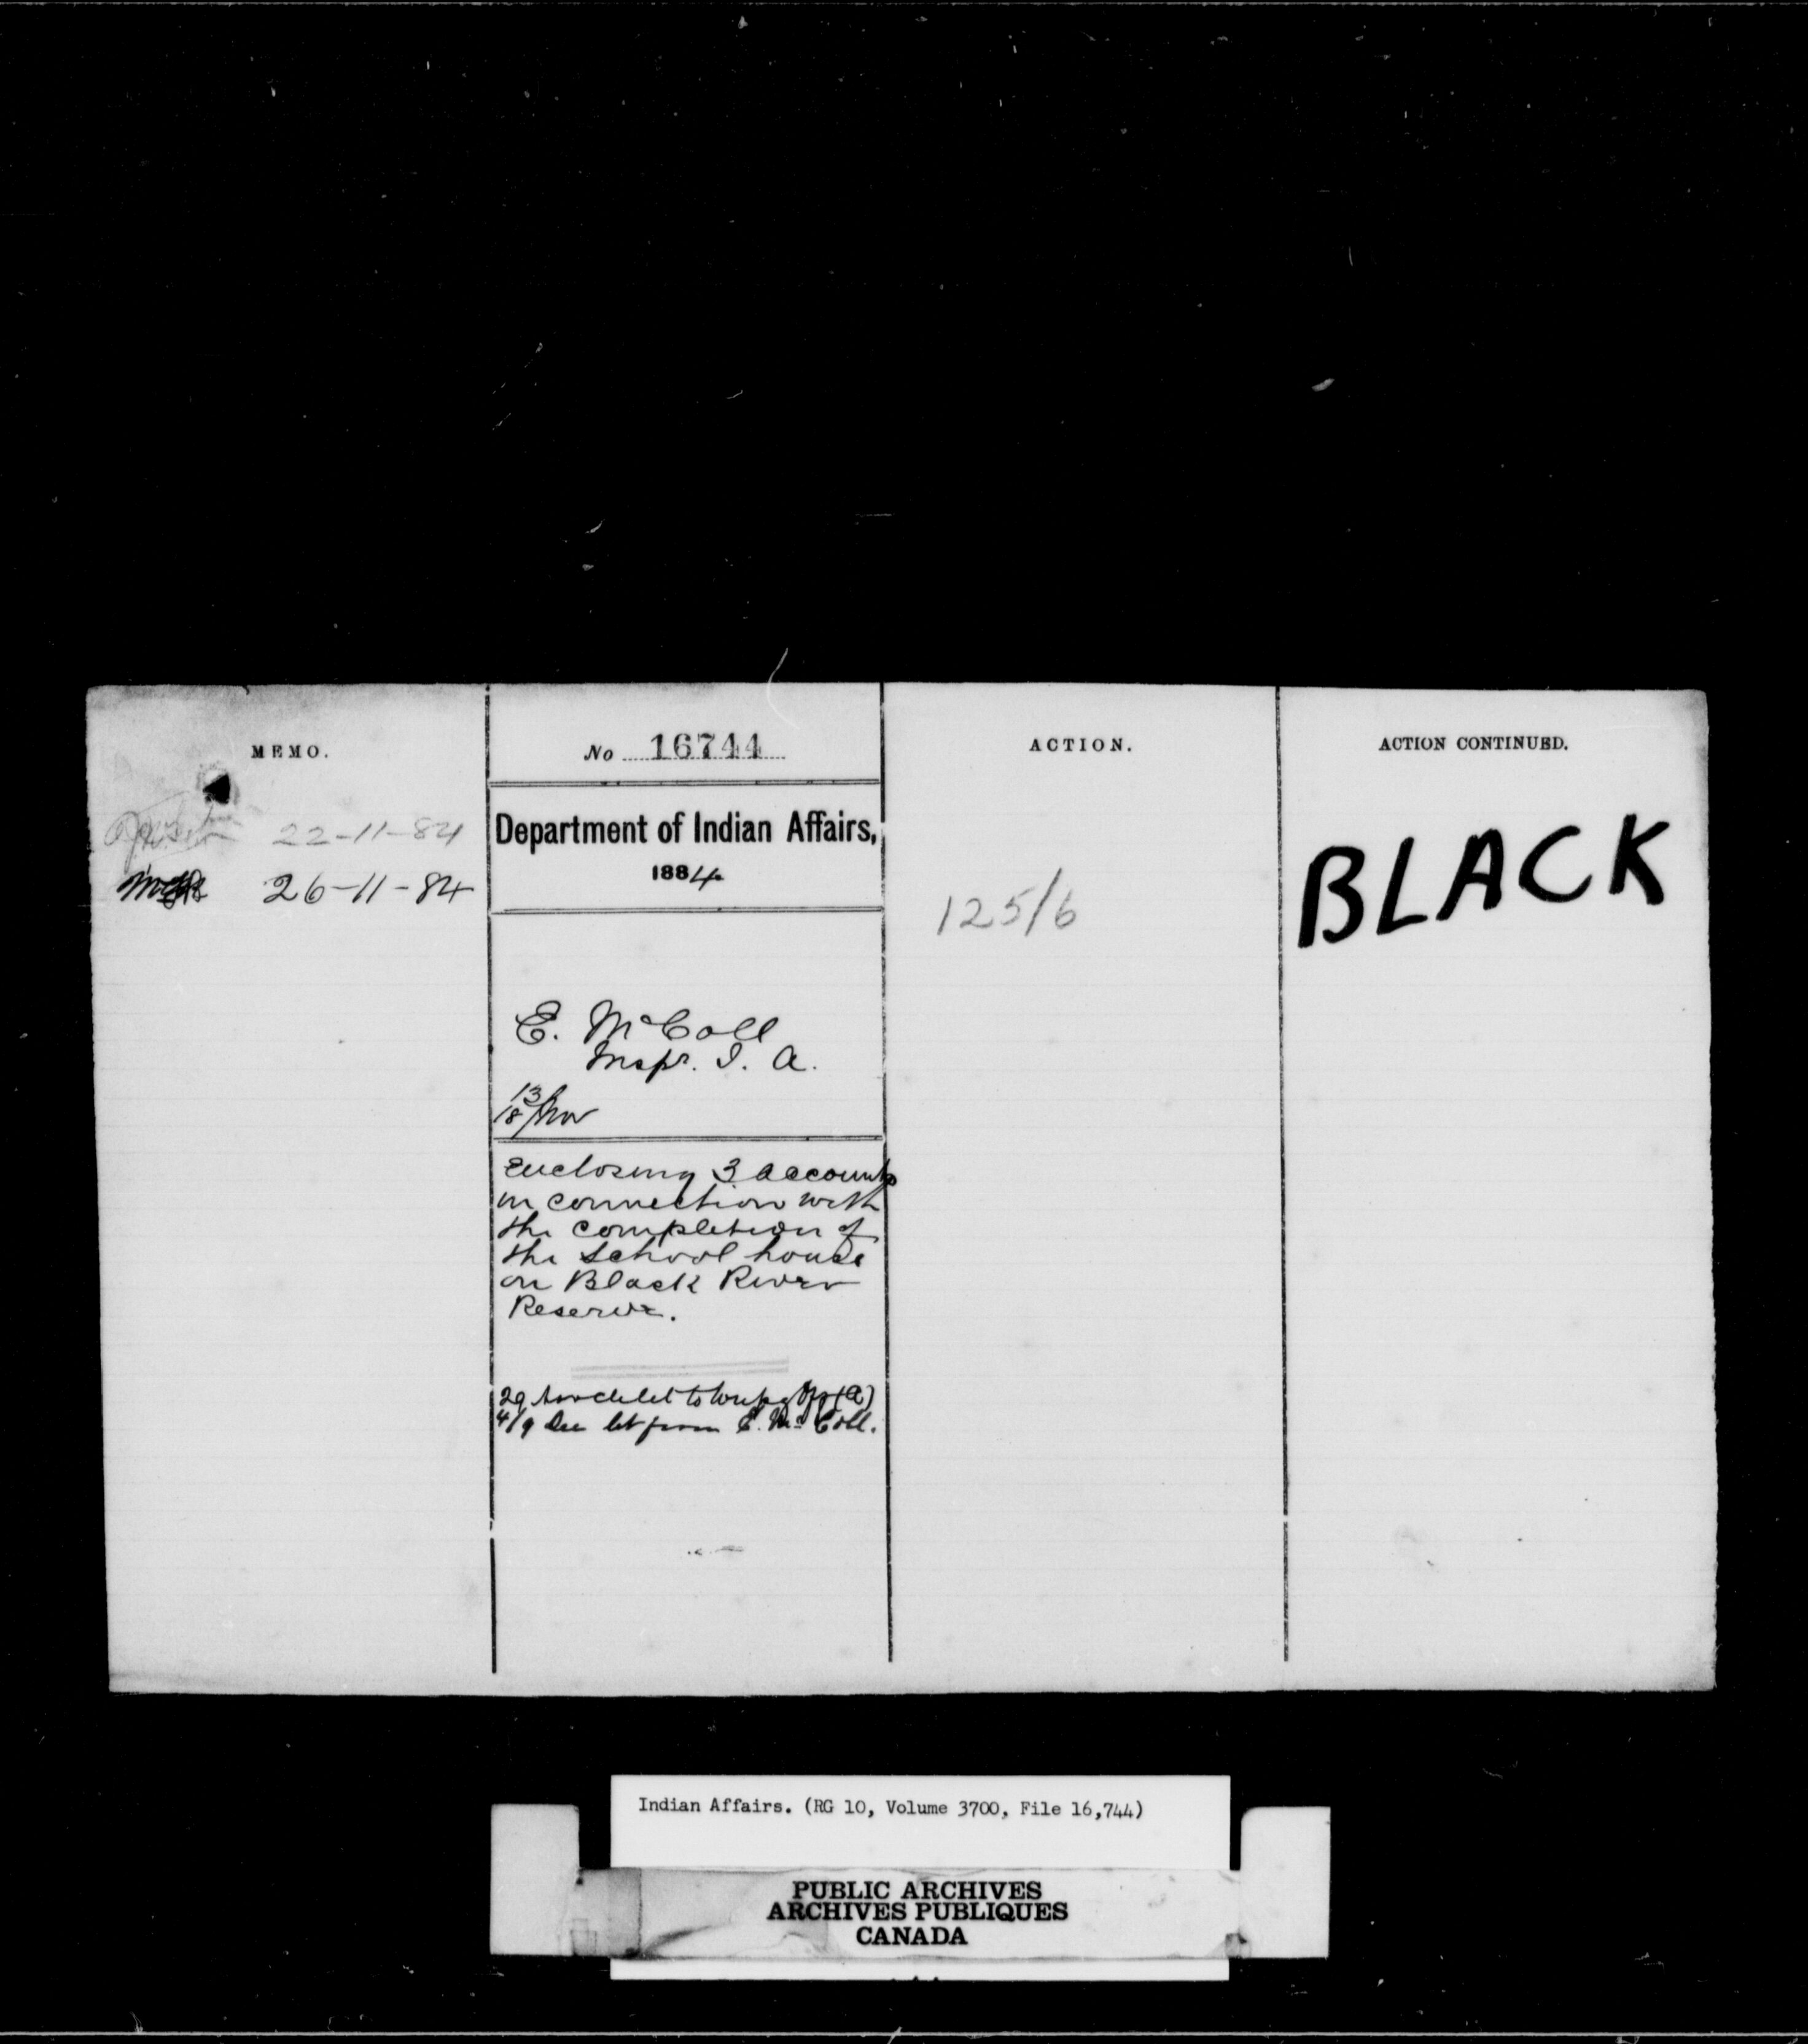 MEMO.
22-11-84
26-11-84
No 16744
Department of Indian Affairs,
1884
E. McColl
Inspr. I. A.
13/18 Nov
Enclosing 3 accounts
in connection with
the completion of
the School house
on Black River
Reserve.
29 let to (A)
4/9 Dec let from E. McColl.
ACTION.
125/6
ACTION CONTINUED.
BLACK
Indian Affairs. (RG 10, Volume 3700, File 16,744)
PUBLIC ARCHIVES
ARCHIVES PUBLIQUES
CANADA